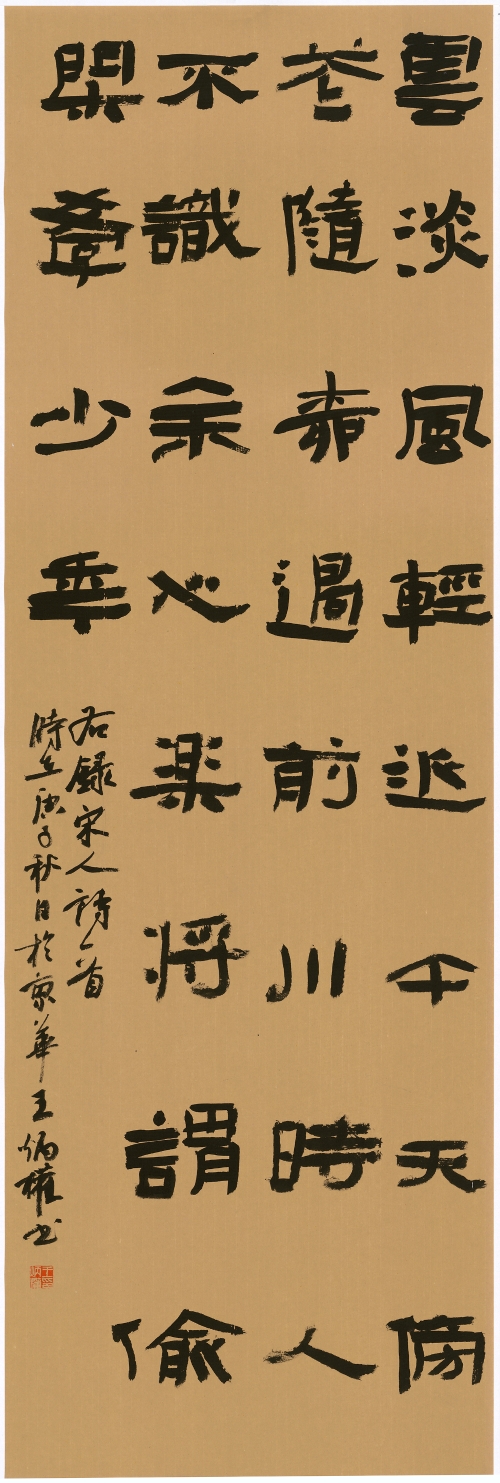 雲淡風輕近午天傍
花隨柳過前川時人
不識余心楽將謂偷
閑學少年
右錄宋人詩一首
時在庚子秋日於京華王炳權书